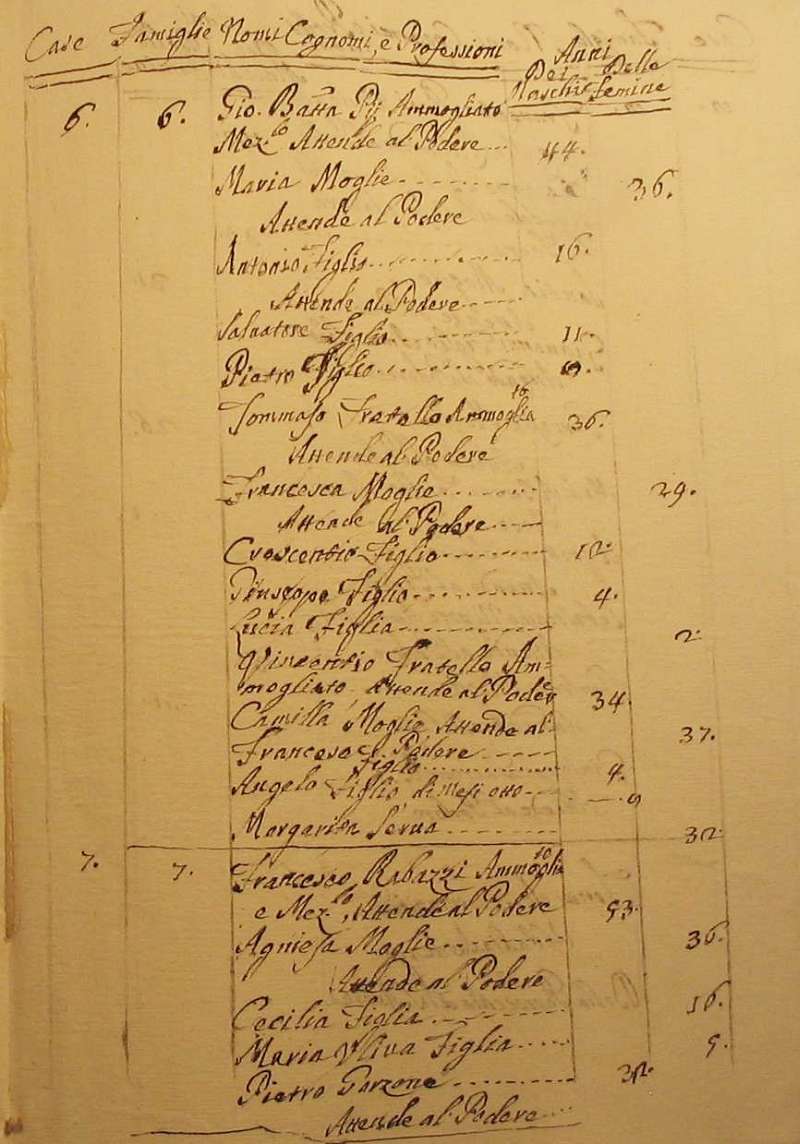 Case Famiglie Nomi Cognomi, e Professioni Anni
Dei Maschi Delle femine
6. 6. Gio. Batta Pij Ammogliato
Mez.lo Attende al Podere 44.
Maria Moglie 36.
Attende al Podere
Antonio Figlio 16.
Attende al Podere
Salvatore Figlio 11.
Pietro Figlio
Tommaso Fratello Ammoglia.to 36.
Attende al Podere
Francesca Moglie 29.
Attende al Podere
Crescentio Figlio 12.
Giuseppe Figlio 4.
Lucia Figlia 2.
Vincentio Fratello Am=
mogliato Attende al Podere 34.
Camilla Moglie Attende al 37.
Podere
Francesco Figlio 4.
Angelo Figlio di Mesi otto
Margarita Serva 32.
7. 7. Francesco Rabazzi Ammoglia.to
e Mez.lo, Attende al Podere 53.
Agniesa Moglie 36.
Attende al Podere
Cecilia Figlia 16.
Maria Uliva Figlia 9.
Pietro Garzone
Attende al Podere